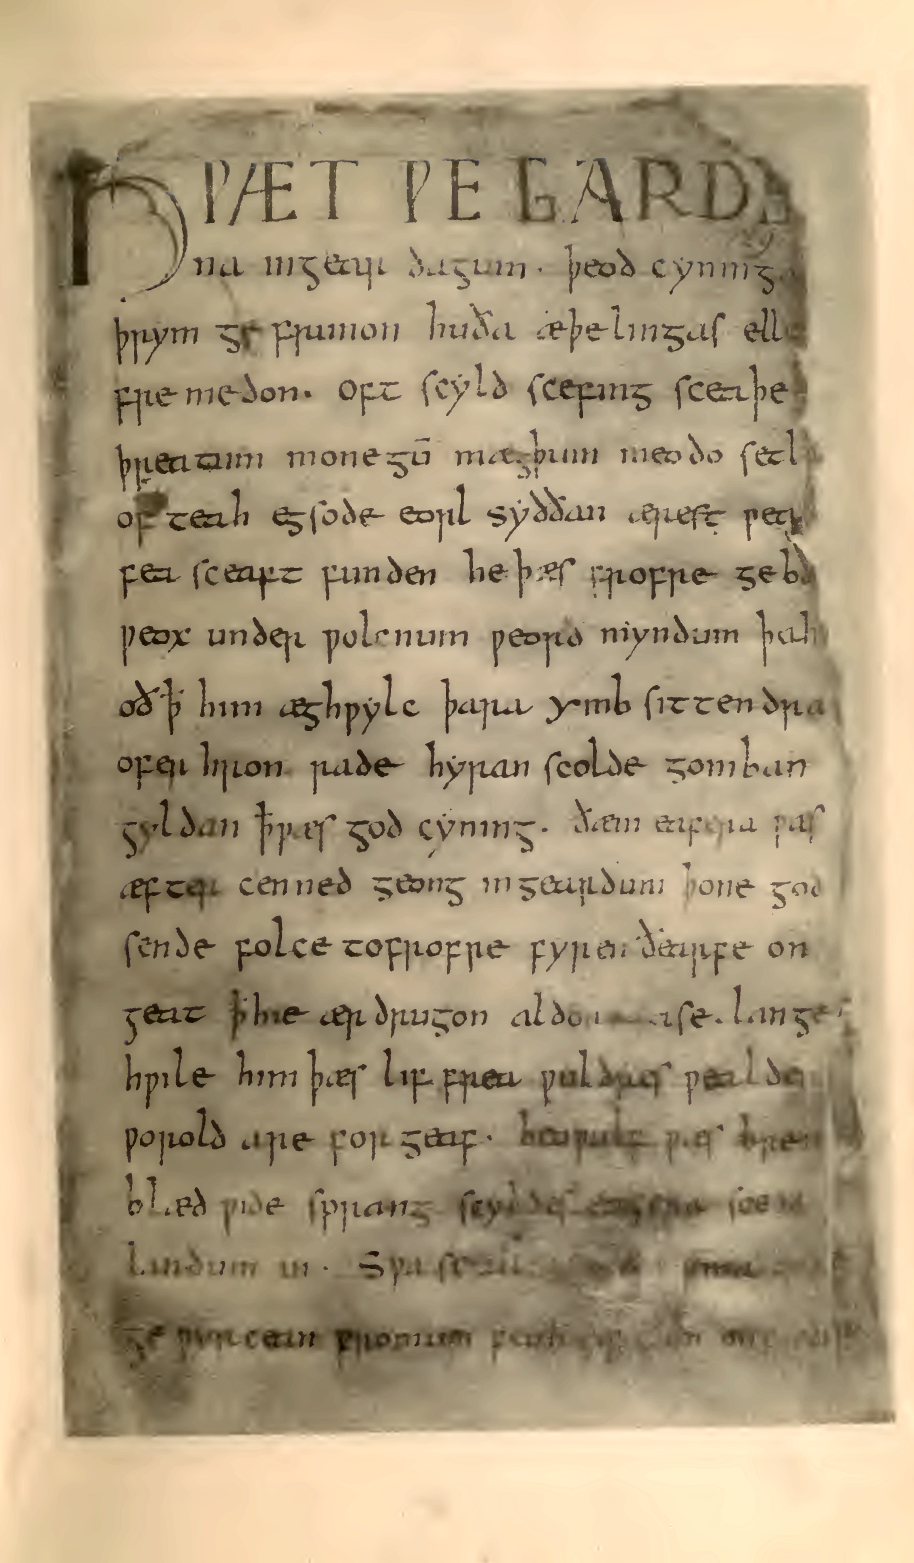 HǷÆT ǷE GARD
na ingear dagum. þeod cyning
þrym ge frunon huða æþelingas ell
fremedon. oft scyld scefing sceaþe
þreatum monegū mægþum meodo setl
of teah egsode eorl syððan ærest ƿear
fea sceaft funden he þæs frofre geba
ƿeox under ƿolcnum ƿeorð myndum þah
oð ꝥ him æghƿylc þara ymb sittendra
ofer hron rade hyran scolde gomban
gyldan ꝥ ƿæs god cyning. ðæm eafera ƿæs
æfter cenned geong ingeardum þone god
sende folce tofrofre fyren ðearfe on
geat ꝥ hie ær drugon aldor ase. lange
hƿile him þæs lif frea ƿuldres ƿealde
ƿorold are for geaf. ƿæs
blæd ƿide sprang scyldes eafera
landum in. Sƿa
ge fromum